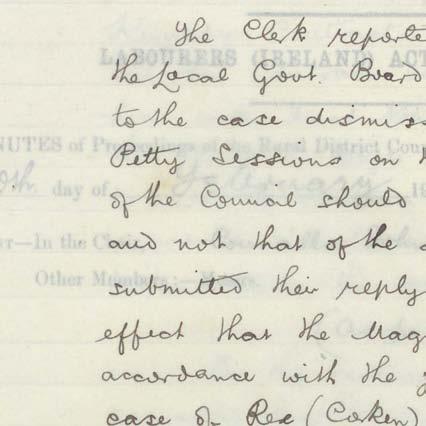 The Clerk reporte
LABOURERS (IRELAND) ACT
the Local Govt. Board
to the case dismiss
NUTES of Proceedings of the Rural District Cou
Petty Sessions on
day of February 19
of the Council should
In the Chair
and not that of the
Other Members:—Messrs.
submitted their reply
effect that the Mag
accordance with the
case of Rex (Corken)